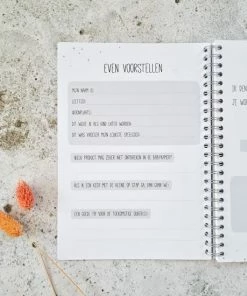 EVEN VOORSTELLEN
MIJN NAAM IS:
LEEFTIJD:
WOONPLAATS:
DIT WILDE IK ALS KIND LATER WORDEN:
DIT WAS VROEGER MIJN LIEFSTE SPEELGOED:
WELK PRODUCT MAG ZEKER NIET ONTBREKEN IN DE BABYKAMER?
ALS IK EEN KEER MET DE KLEINE OP STAP GA, DAN GAAN WE:
EEN GOEDE TIP VOOR DE TOEKOMSTIGE OUDERS:
IK DEN
JE WOR